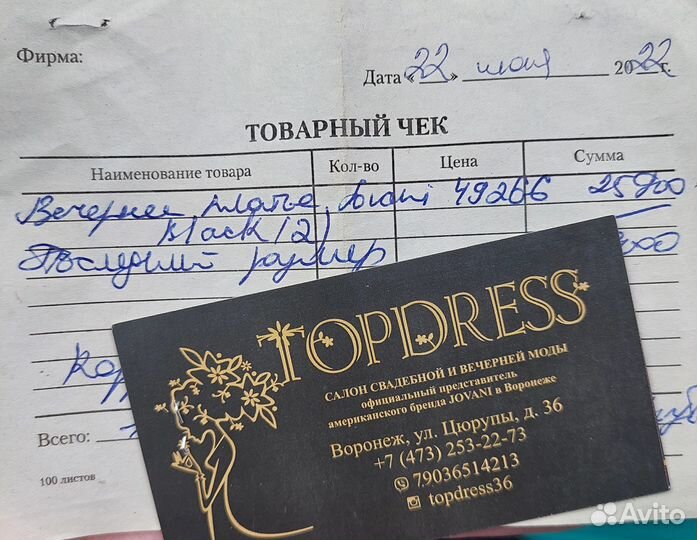 Фирма:
Дата «22» июля 2022 г.
ТОВАРНЫЙ ЧЕК
Наименование товара Кол-во Цена Сумма
Вечернее платье Jovani 49266 25900
Black (2)
Последний размер 000
Кор
Всего:
100 листов
TOPDRESS
САЛОН СВАДЕБНОЙ И ВЕЧЕРНЕЙ МОДЫ
официальный представитель
американского бренда JOVANI в Воронеже
Воронеж, ул. Цюрупы, д. 36
+7 (473) 253-22-73
79036514213
topdress36
Avito